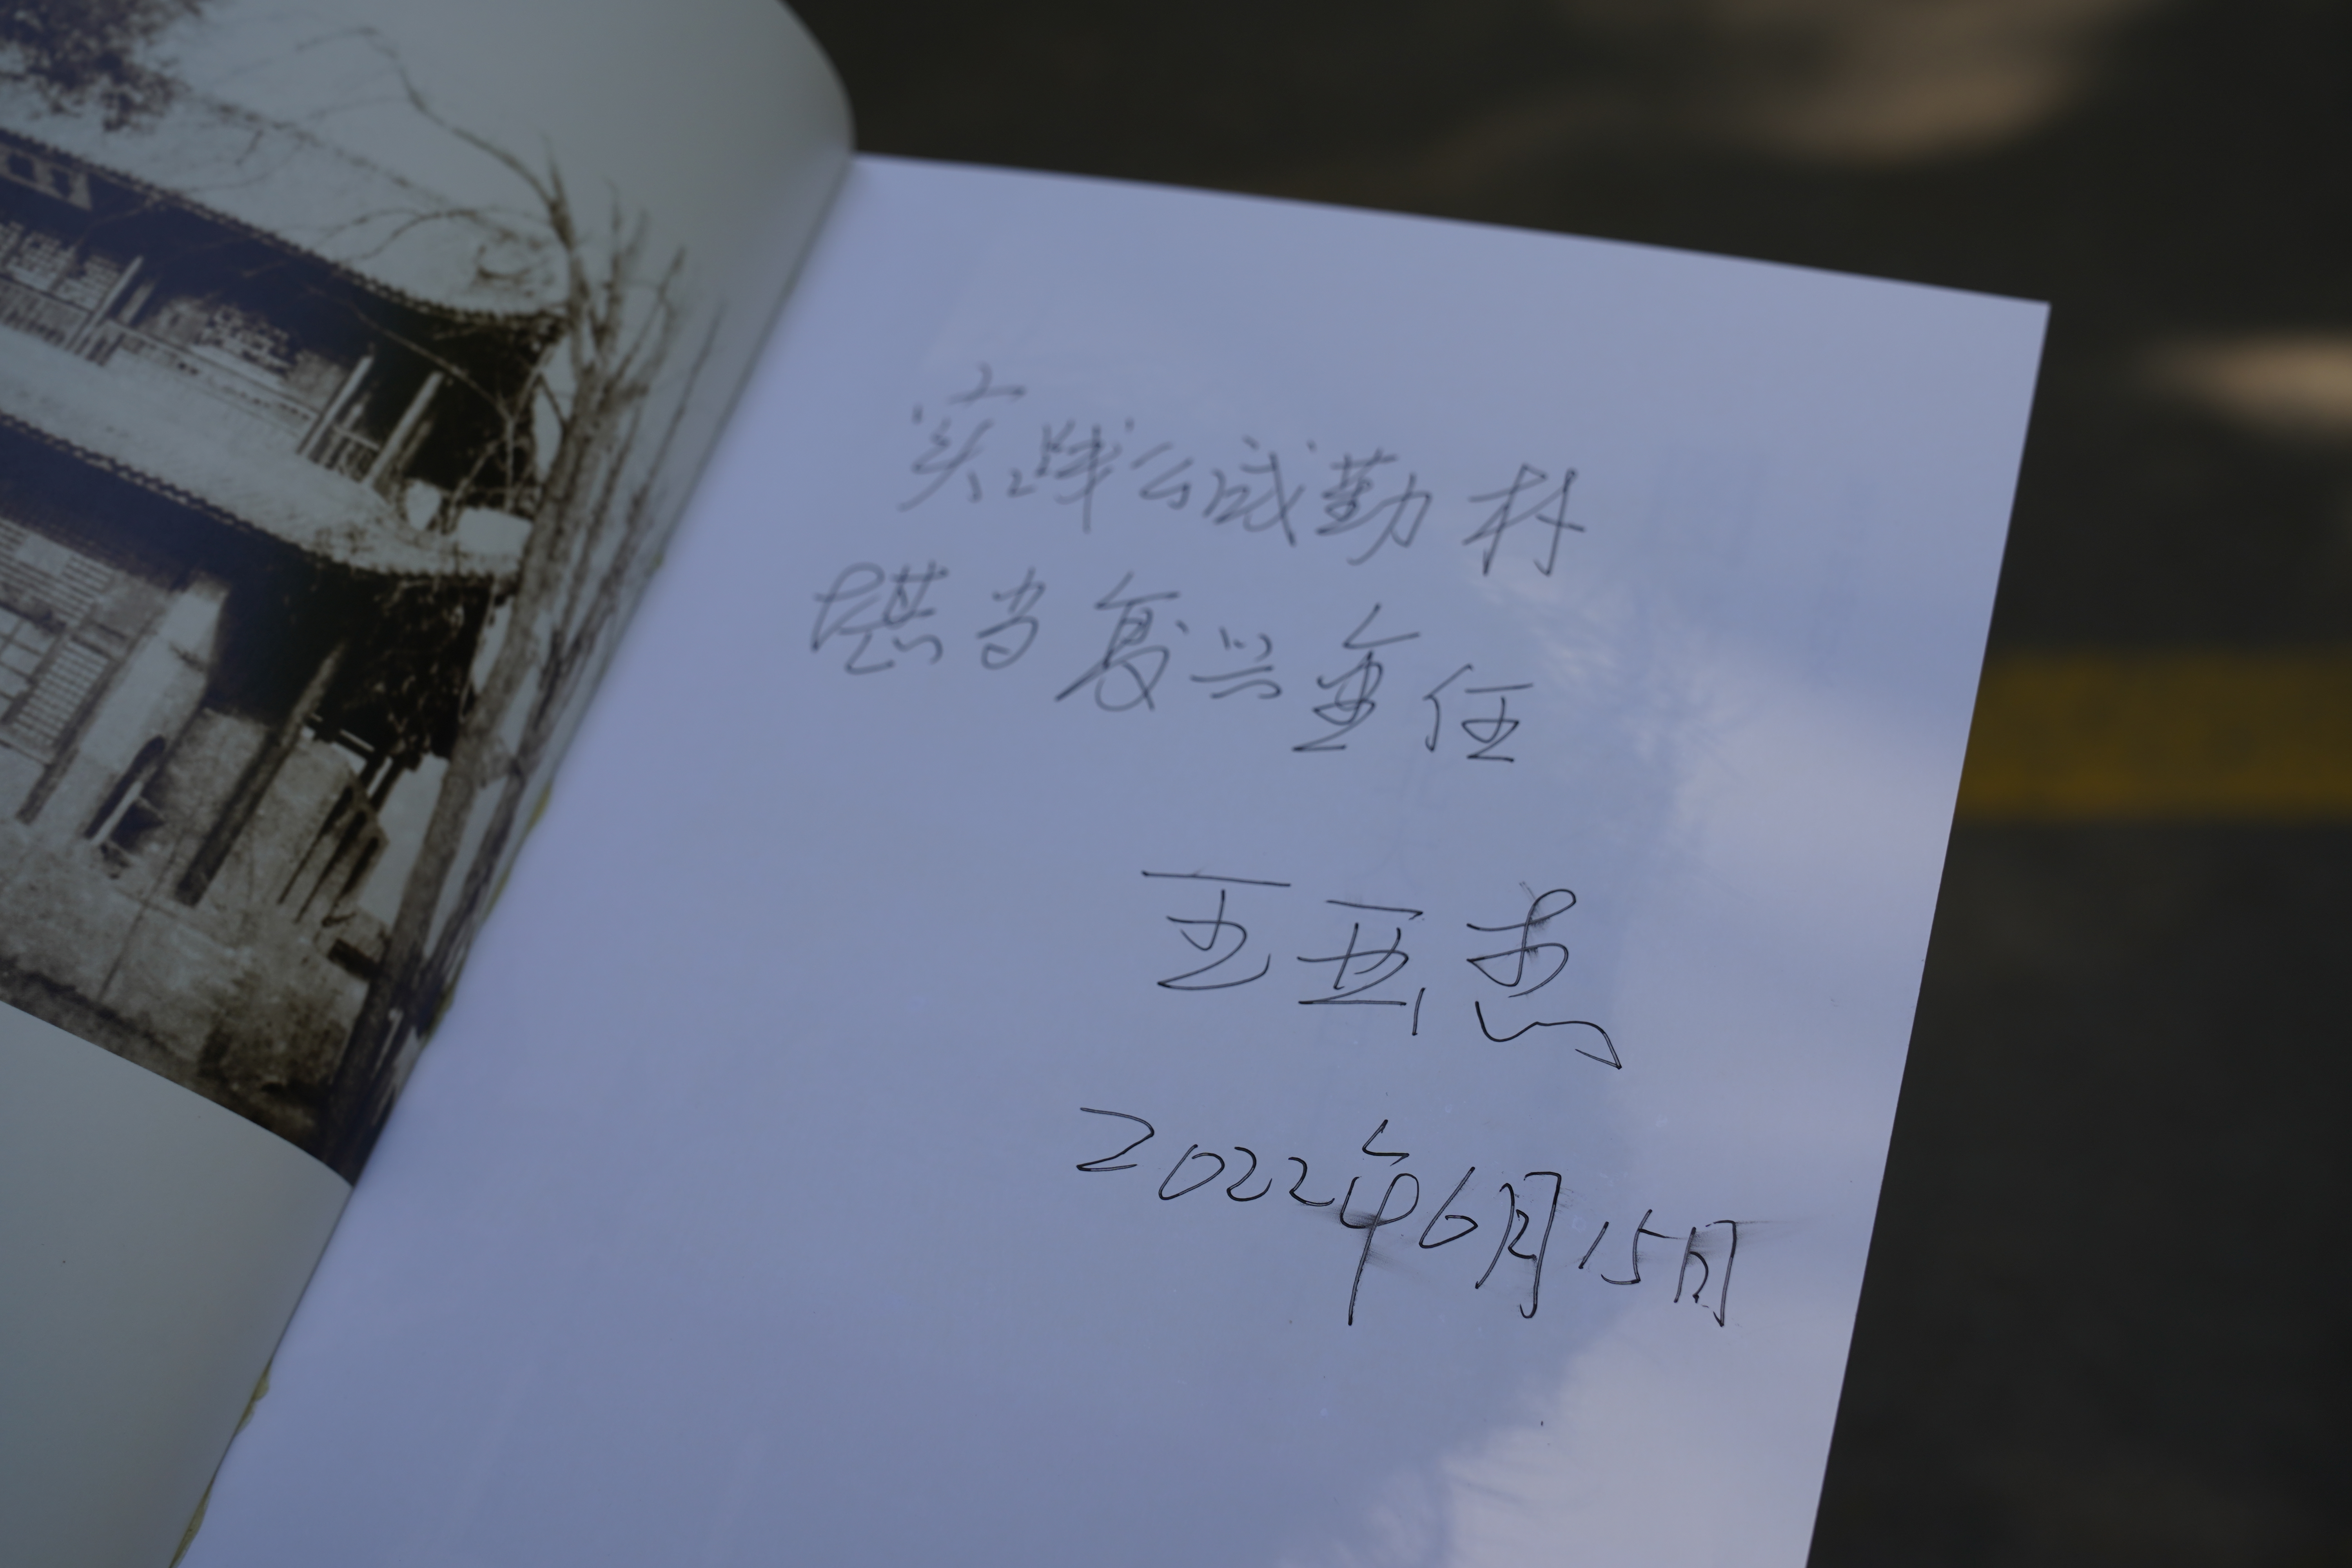 实践公诚勤朴
堪当复兴重任
王亚杰
2022年6月15日